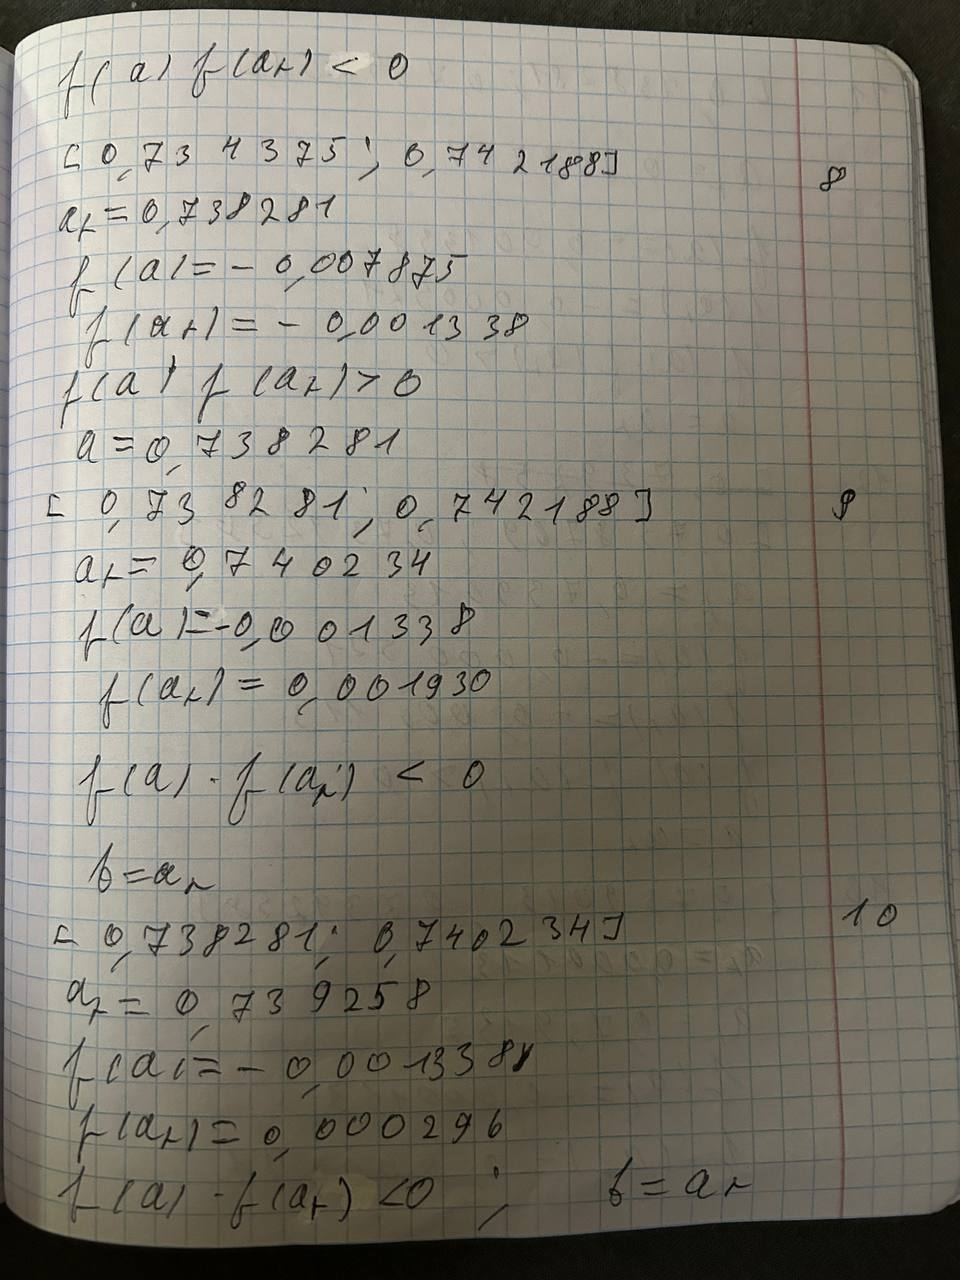 f(a) f(aₙ) < 0
[0,734375; 0,742188] 8
aₙ = 0,738281
f(a) = - 0,007875
f(aₙ) = - 0,001338
f(a) f(aₙ) > 0
a = 0,738281
[0,738281; 0,742188] 9
aₙ = 0,740234
f(a) = -0,001338
f(aₙ) = 0,001930
f(a) · f(aₙ) < 0
b = aₙ
[0,738281; 0,740234] 10
aₙ = 0,739258
f(a) = - 0,001338
f(aₙ) = 0,000296
f(a) · f(aₙ) < 0 ; b = aₙ